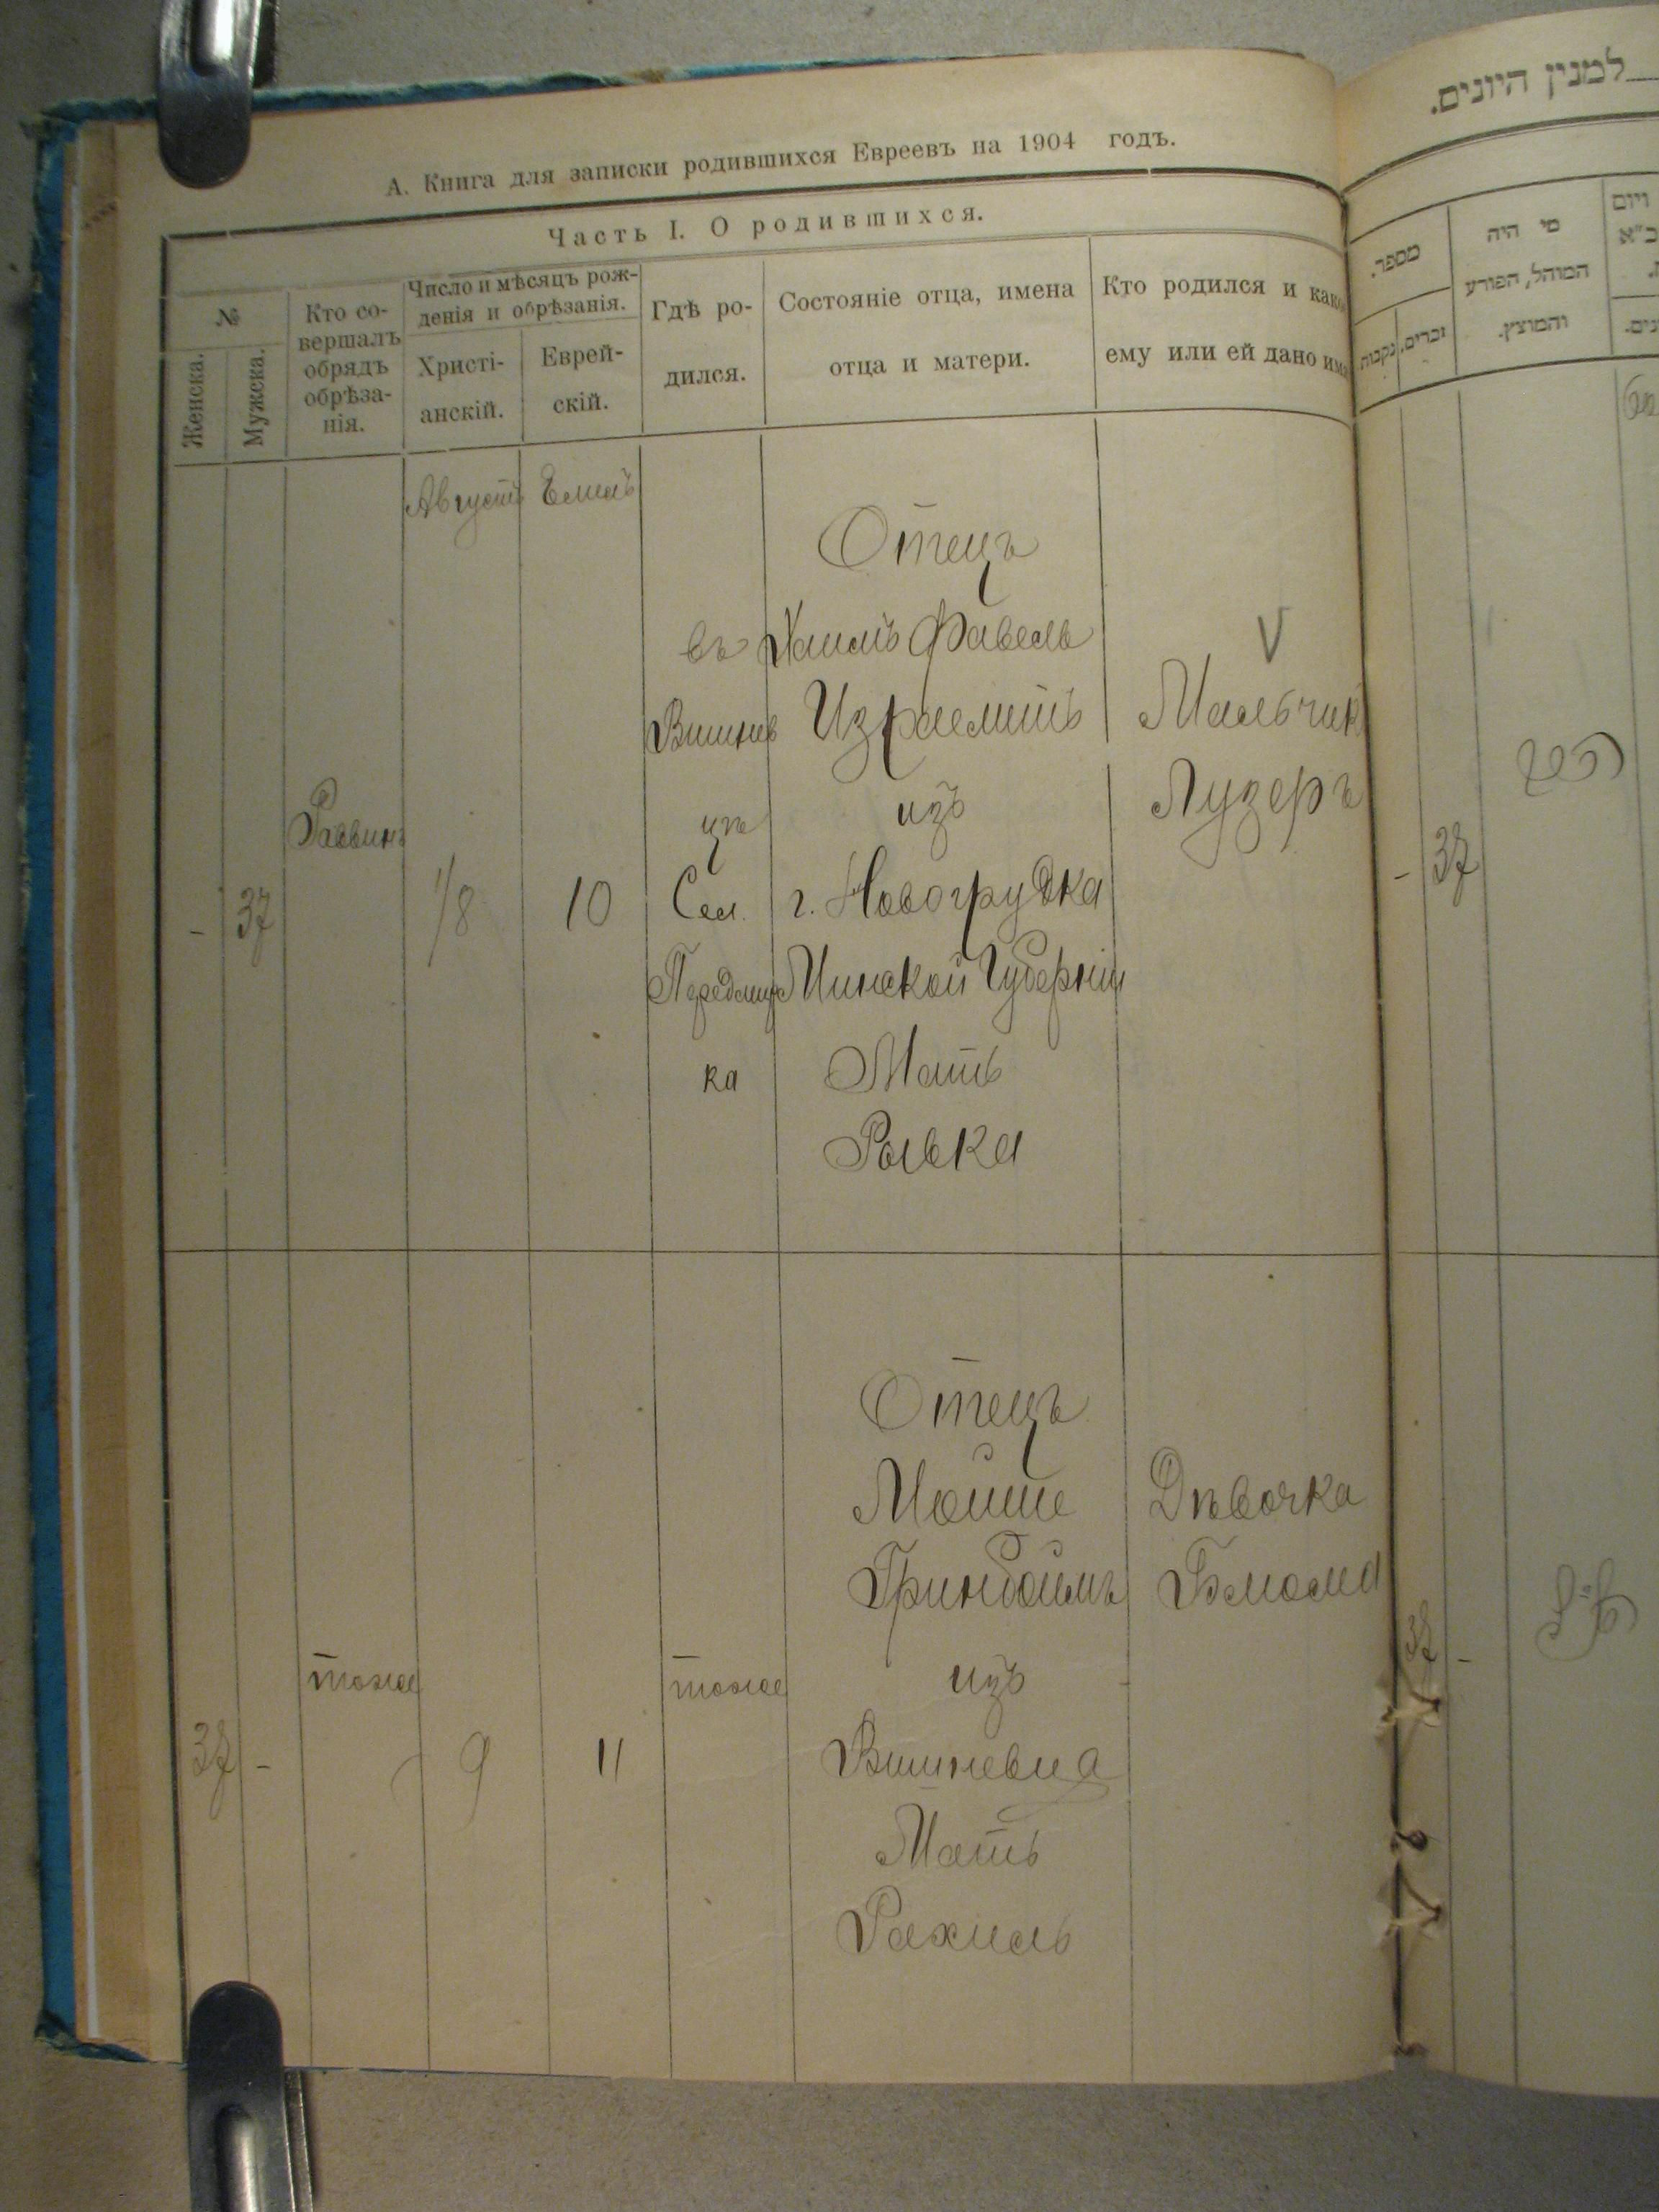 А. Книга для записки родившихся Евреевъ на 1904 годъ.
Часть I. О родившихся.
№
Женска.
Мужска.
Кто со-
вершалъ
обрядъ
обрѣза-
нія.
Число и мѣсяцъ рож-
денія и обрѣзанія.
Христі-
анскій.
Еврей-
скій.
Гдѣ ро-
дился.
Состояніе отца, имена
отца и матери.
Кто родился и како
ему или ей дано им
Августъ
-
37
Раввинъ
1/8
10
въ
Вишнев
цѣ
Сел.
ка
Отецъ
Хаимъ Файвель
из
г. Новогрудка
Минской Губерніи
Мать
Рывка
V
Мальчик
Лузеръ
37
-
тоже
9
11
тоже
Отецъ
Мойше
Гринбоимъ
изъ
Вишневца
Мать
Рахиль
Дѣвочка
למנין היונים.
מספר.
נקבות
זכרים.
מי היה
המוהל, הפורע
והמוצץ.
ויום
- 37
37 -